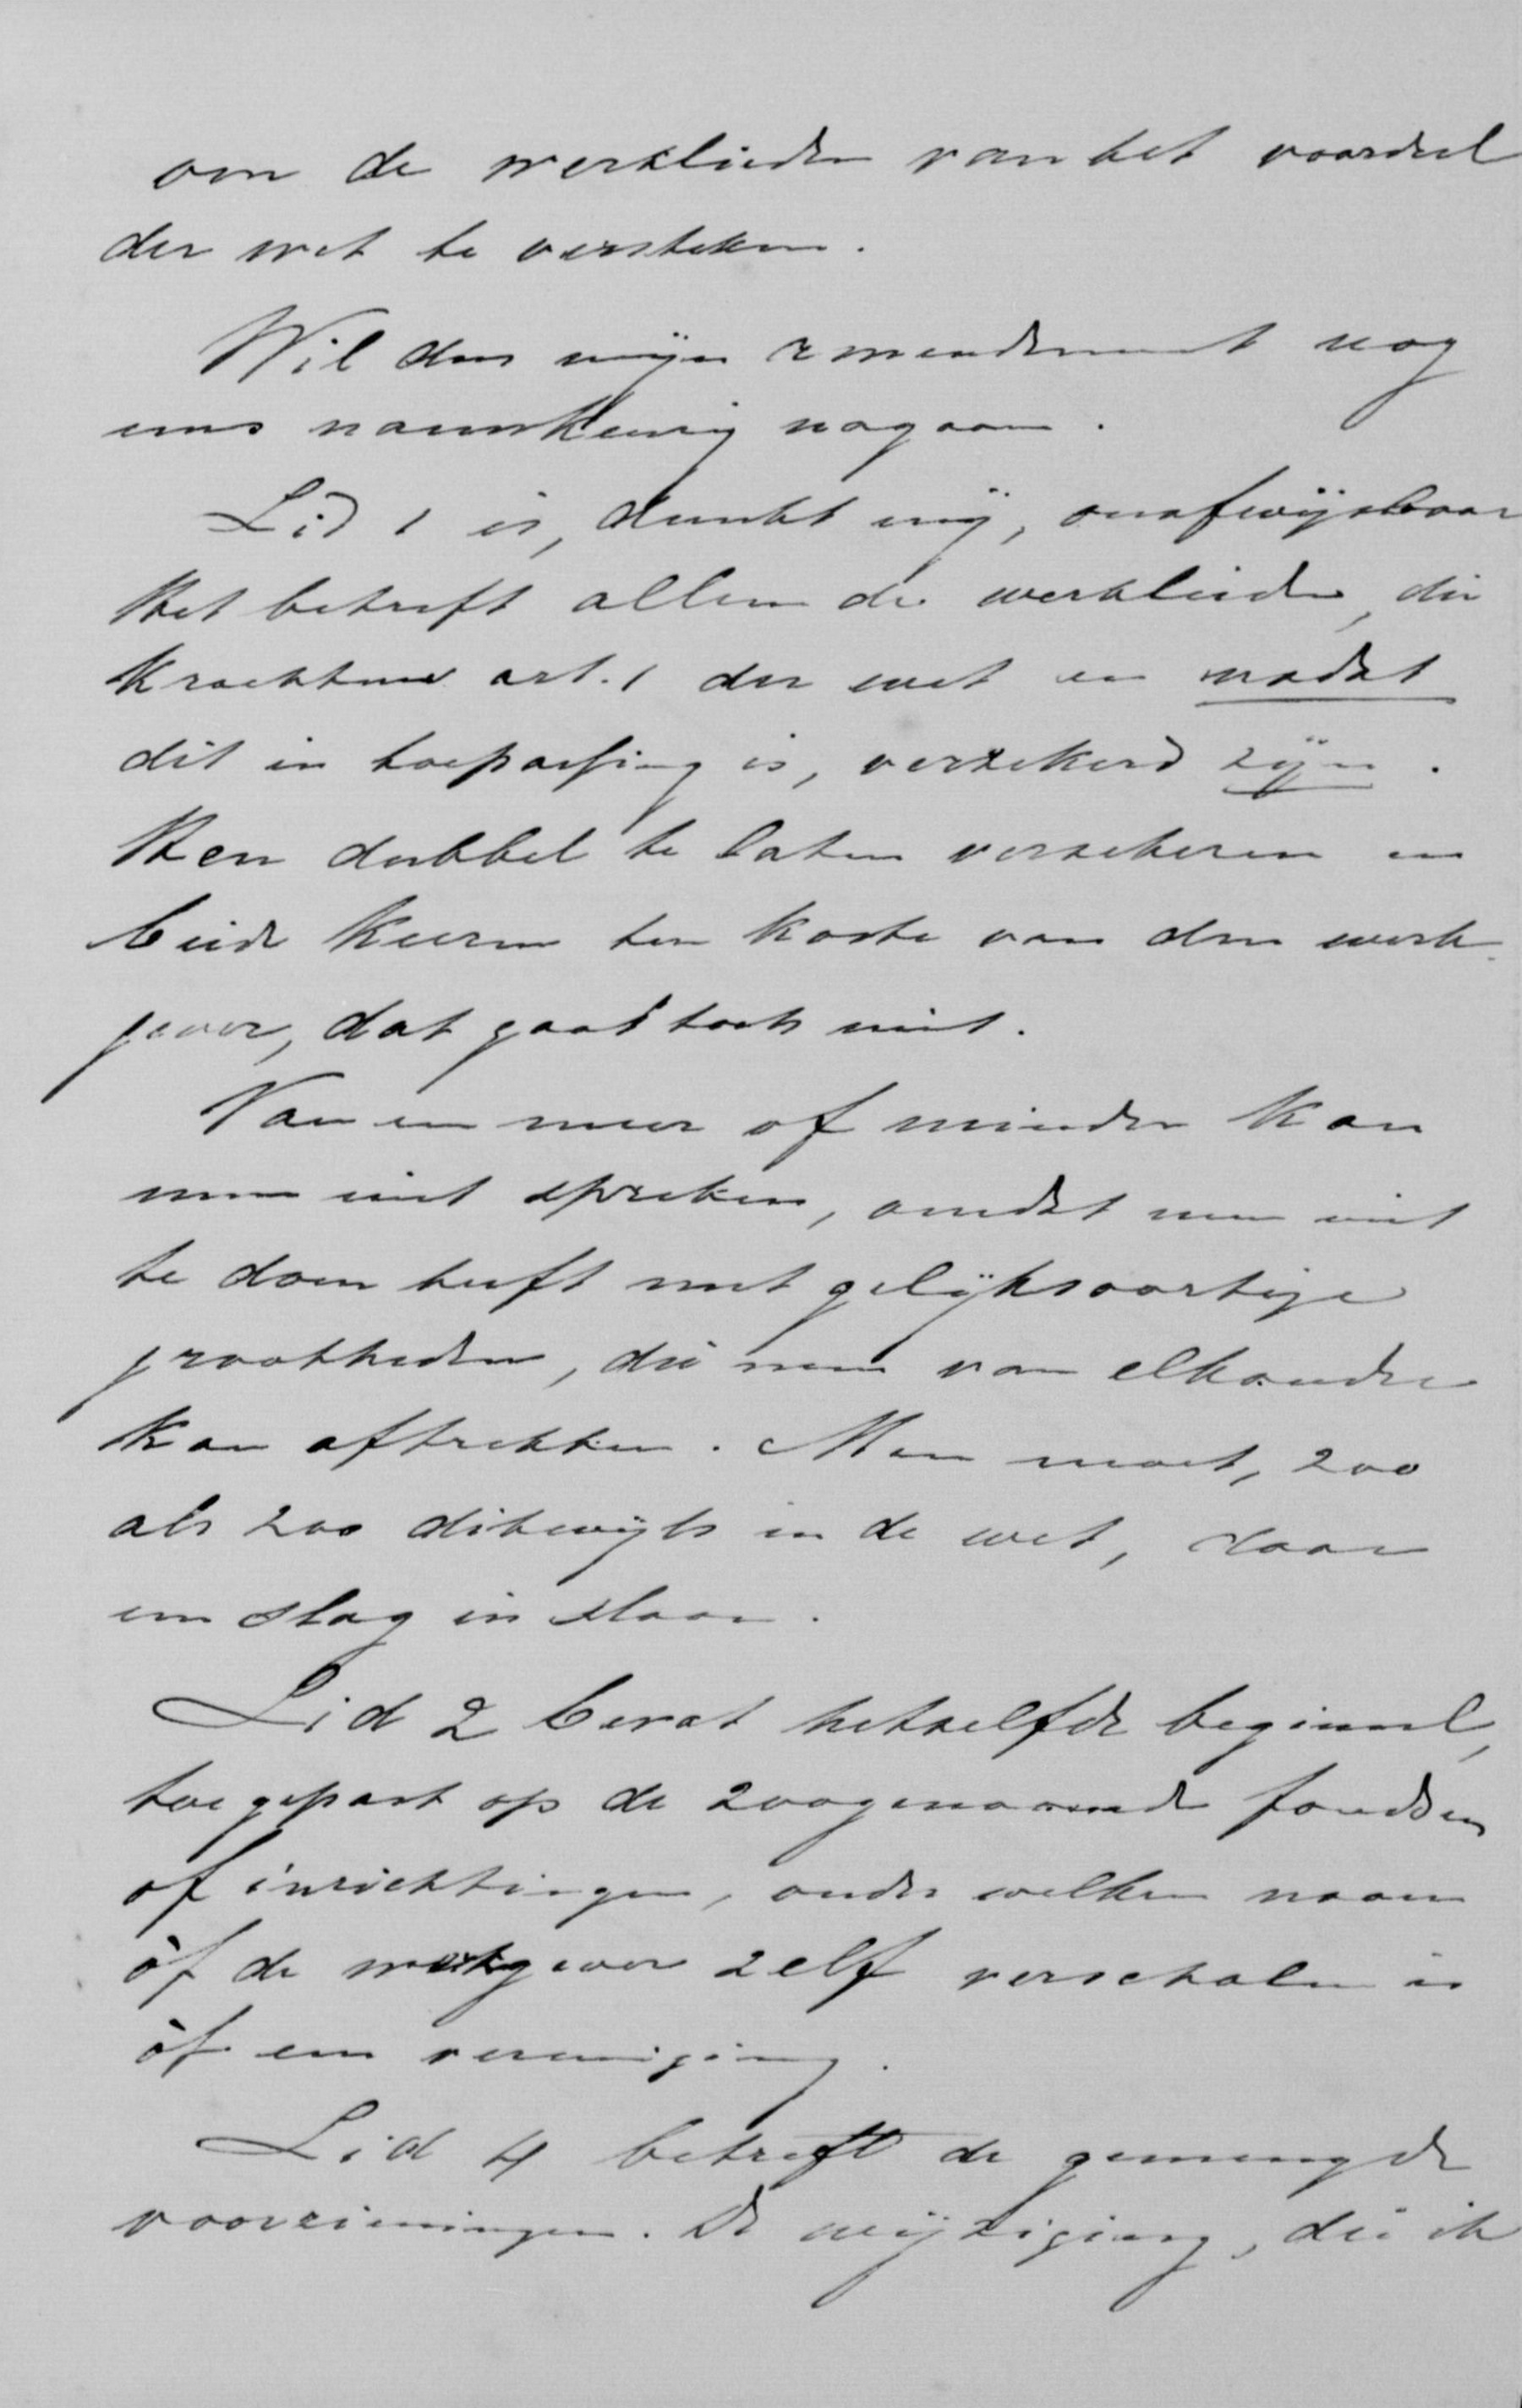 om de werklieden van het voordeel
der wet te versteken.
Wil dan mijn amendement nog
eens nauwkeurig nagaan.
Lid 1 is, dunkt mij, onafwijsbaar
Het betreft alleen de werklieden, die
krachtens art. 1 der wet en nadat
dit in toepassing is, verzekerd zijn.
Hen dubbel te laten verzekeren en
beide keeren ten koste van den werk-
gever, dat gaat toch niet.
Van een meer of minder kan
men niet spreken, omdat men niet
te doen heeft met gelijksoortige
grootheden, die men van elkander
kan aftrekken. Men moet, zoo
als zoo dikwijls in de wet, daar
een slag in slaan.
Lid 2 bevat hetzelfde beginsel,
toegepast op de zoogenaamde fondsen
of inrichtingen, onder welken naam
òf de werkgever zelf verscholen is
òf een vereeniging.
Lid 4 betreft de gemengde
voorzieningen. De wijziging, die ik